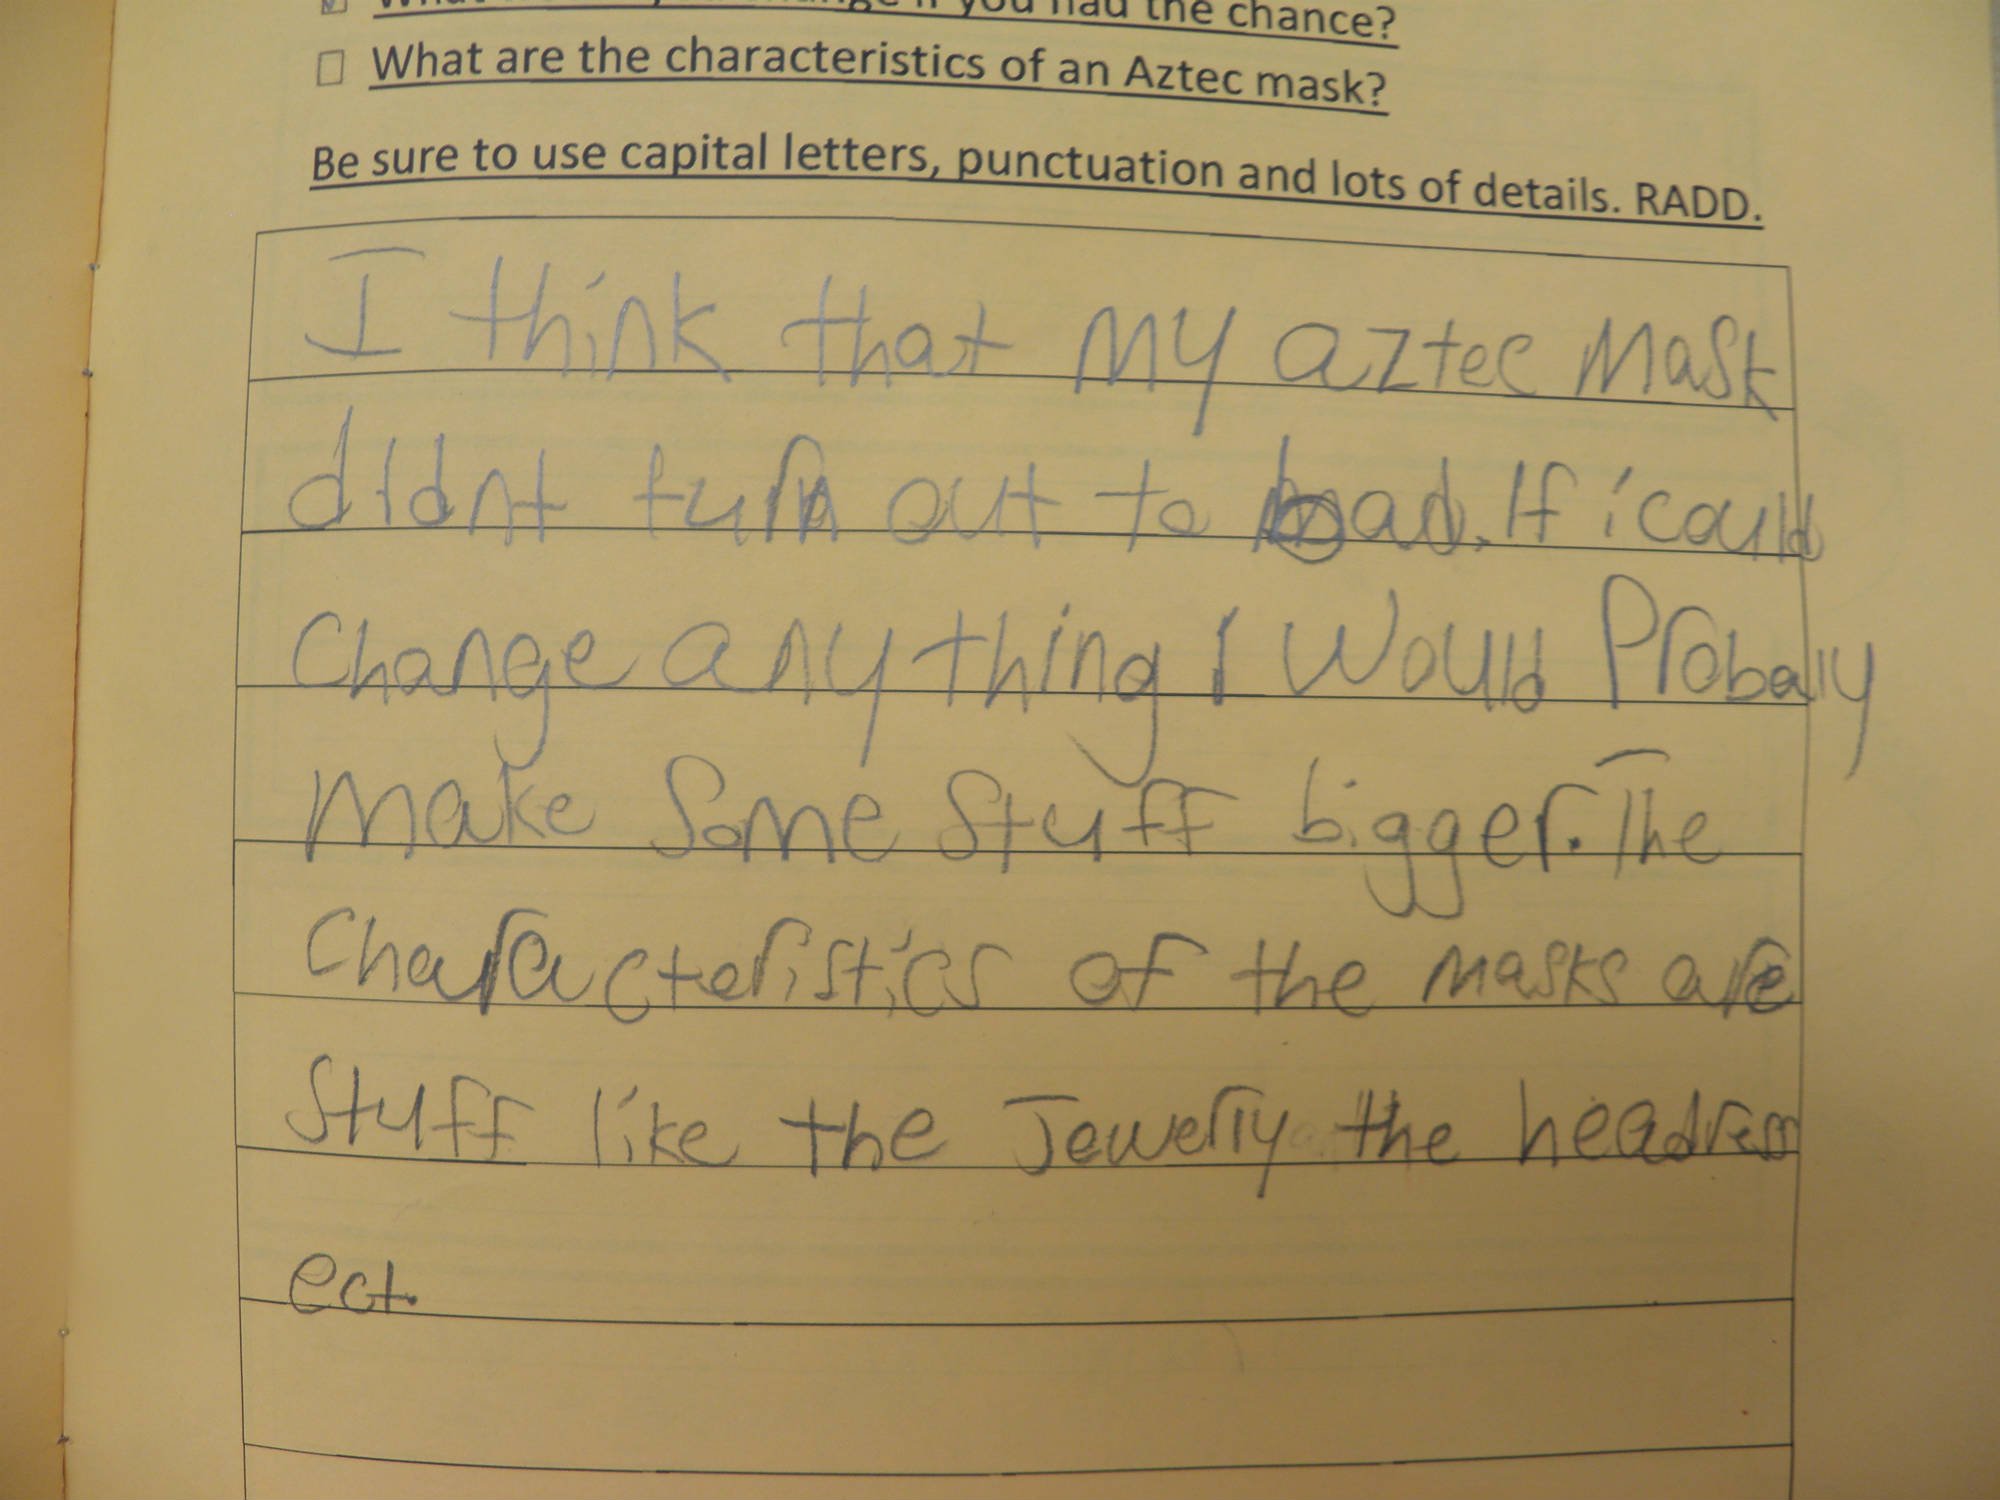 you had the chance?
What are the characteristics of an Aztec mask?
Be sure to use capital letters, punctuation and lots of details. RADD.
I think that my aztec mask
didnt turn out to bad. If i could
change any thing I would Probally
make some stuff bigger. The
characteristics of the masks are
stuff like the Jewelry the headress
ect.